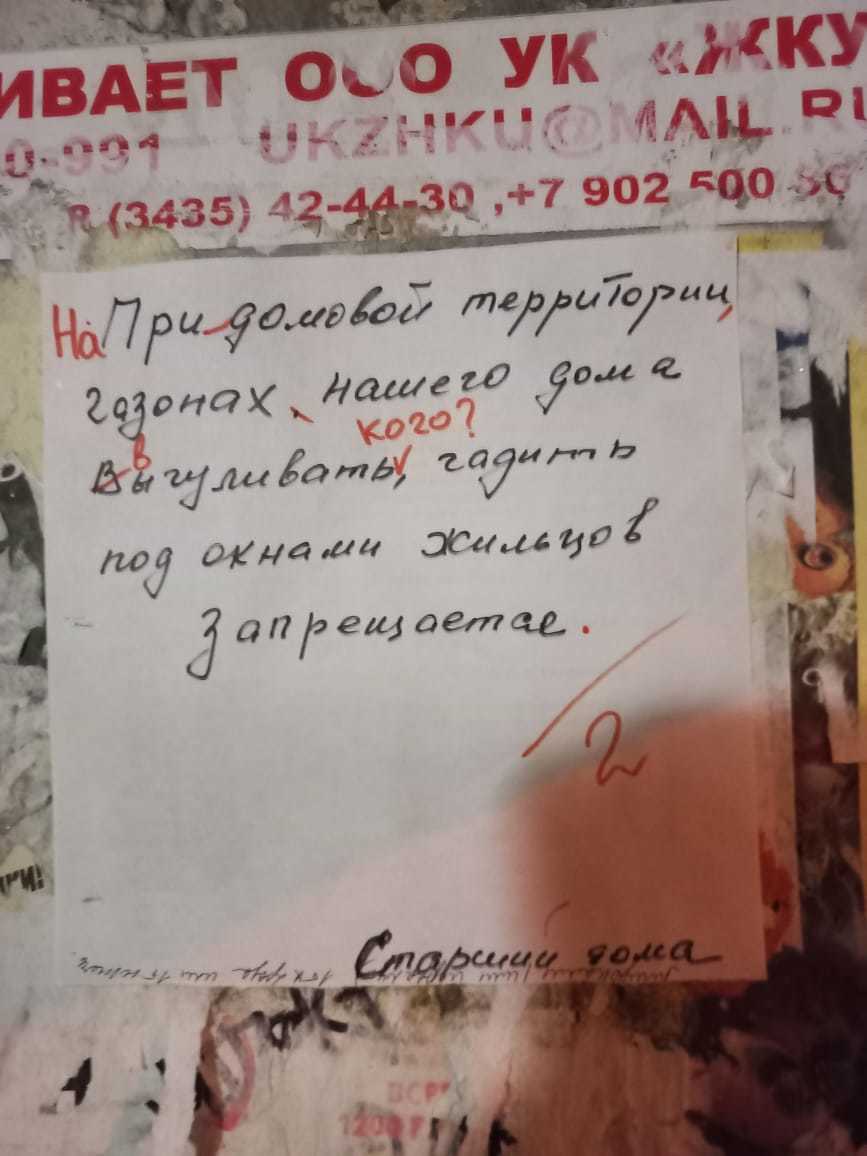 ИВАЕТ ООО УК «ЖКУ
0-991 UKZHKU@MAIL.RU
(3435) 42-44-30 ,+7 902 500
На При-домовой территории,
газонах, нашего дома
кого?
в Выгуливать, гадить
под окнами жильцов
Запрещается.
2
Старший дома
1200